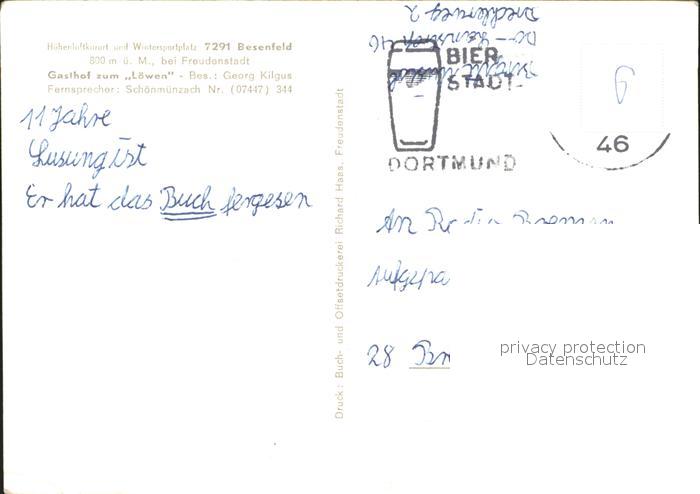 Höhenluftkurort und Wintersportplatz 7291 Besenfeld
800 m ü. M., bei Freudenstadt
Gasthof zum „Löwen" - Bes.: Georg Kilgus
Fernsprecher: Schönmünzach Nr. (07447) 344
11 Jahre
Lusung ist
Er hat das Buch fergesen
Druck: Buch- und Offsetdruckerei Richard Haas, Freudenstadt
BIER
STADT
DORTMUND
46
9
An Bremen
28
privacy protection
Datenschutz